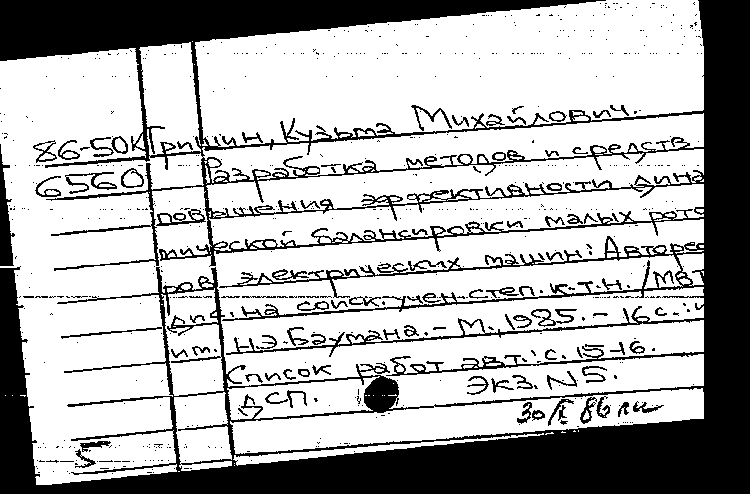 86-50К Гришин, Кузьма Михайлович.
6560 Разработка методов и средств
повышения эффективности дина
мической балансировки малых рото
ров электрических машин: Авторес
дис. на соиск. учен. степ. к.т.н. /МВТ
им. Н.Э.Баумана. – М., 1985. – 16 с.: и
Список работ авт.: с. 15-16.
ДСП. Экз. N5.
86
5